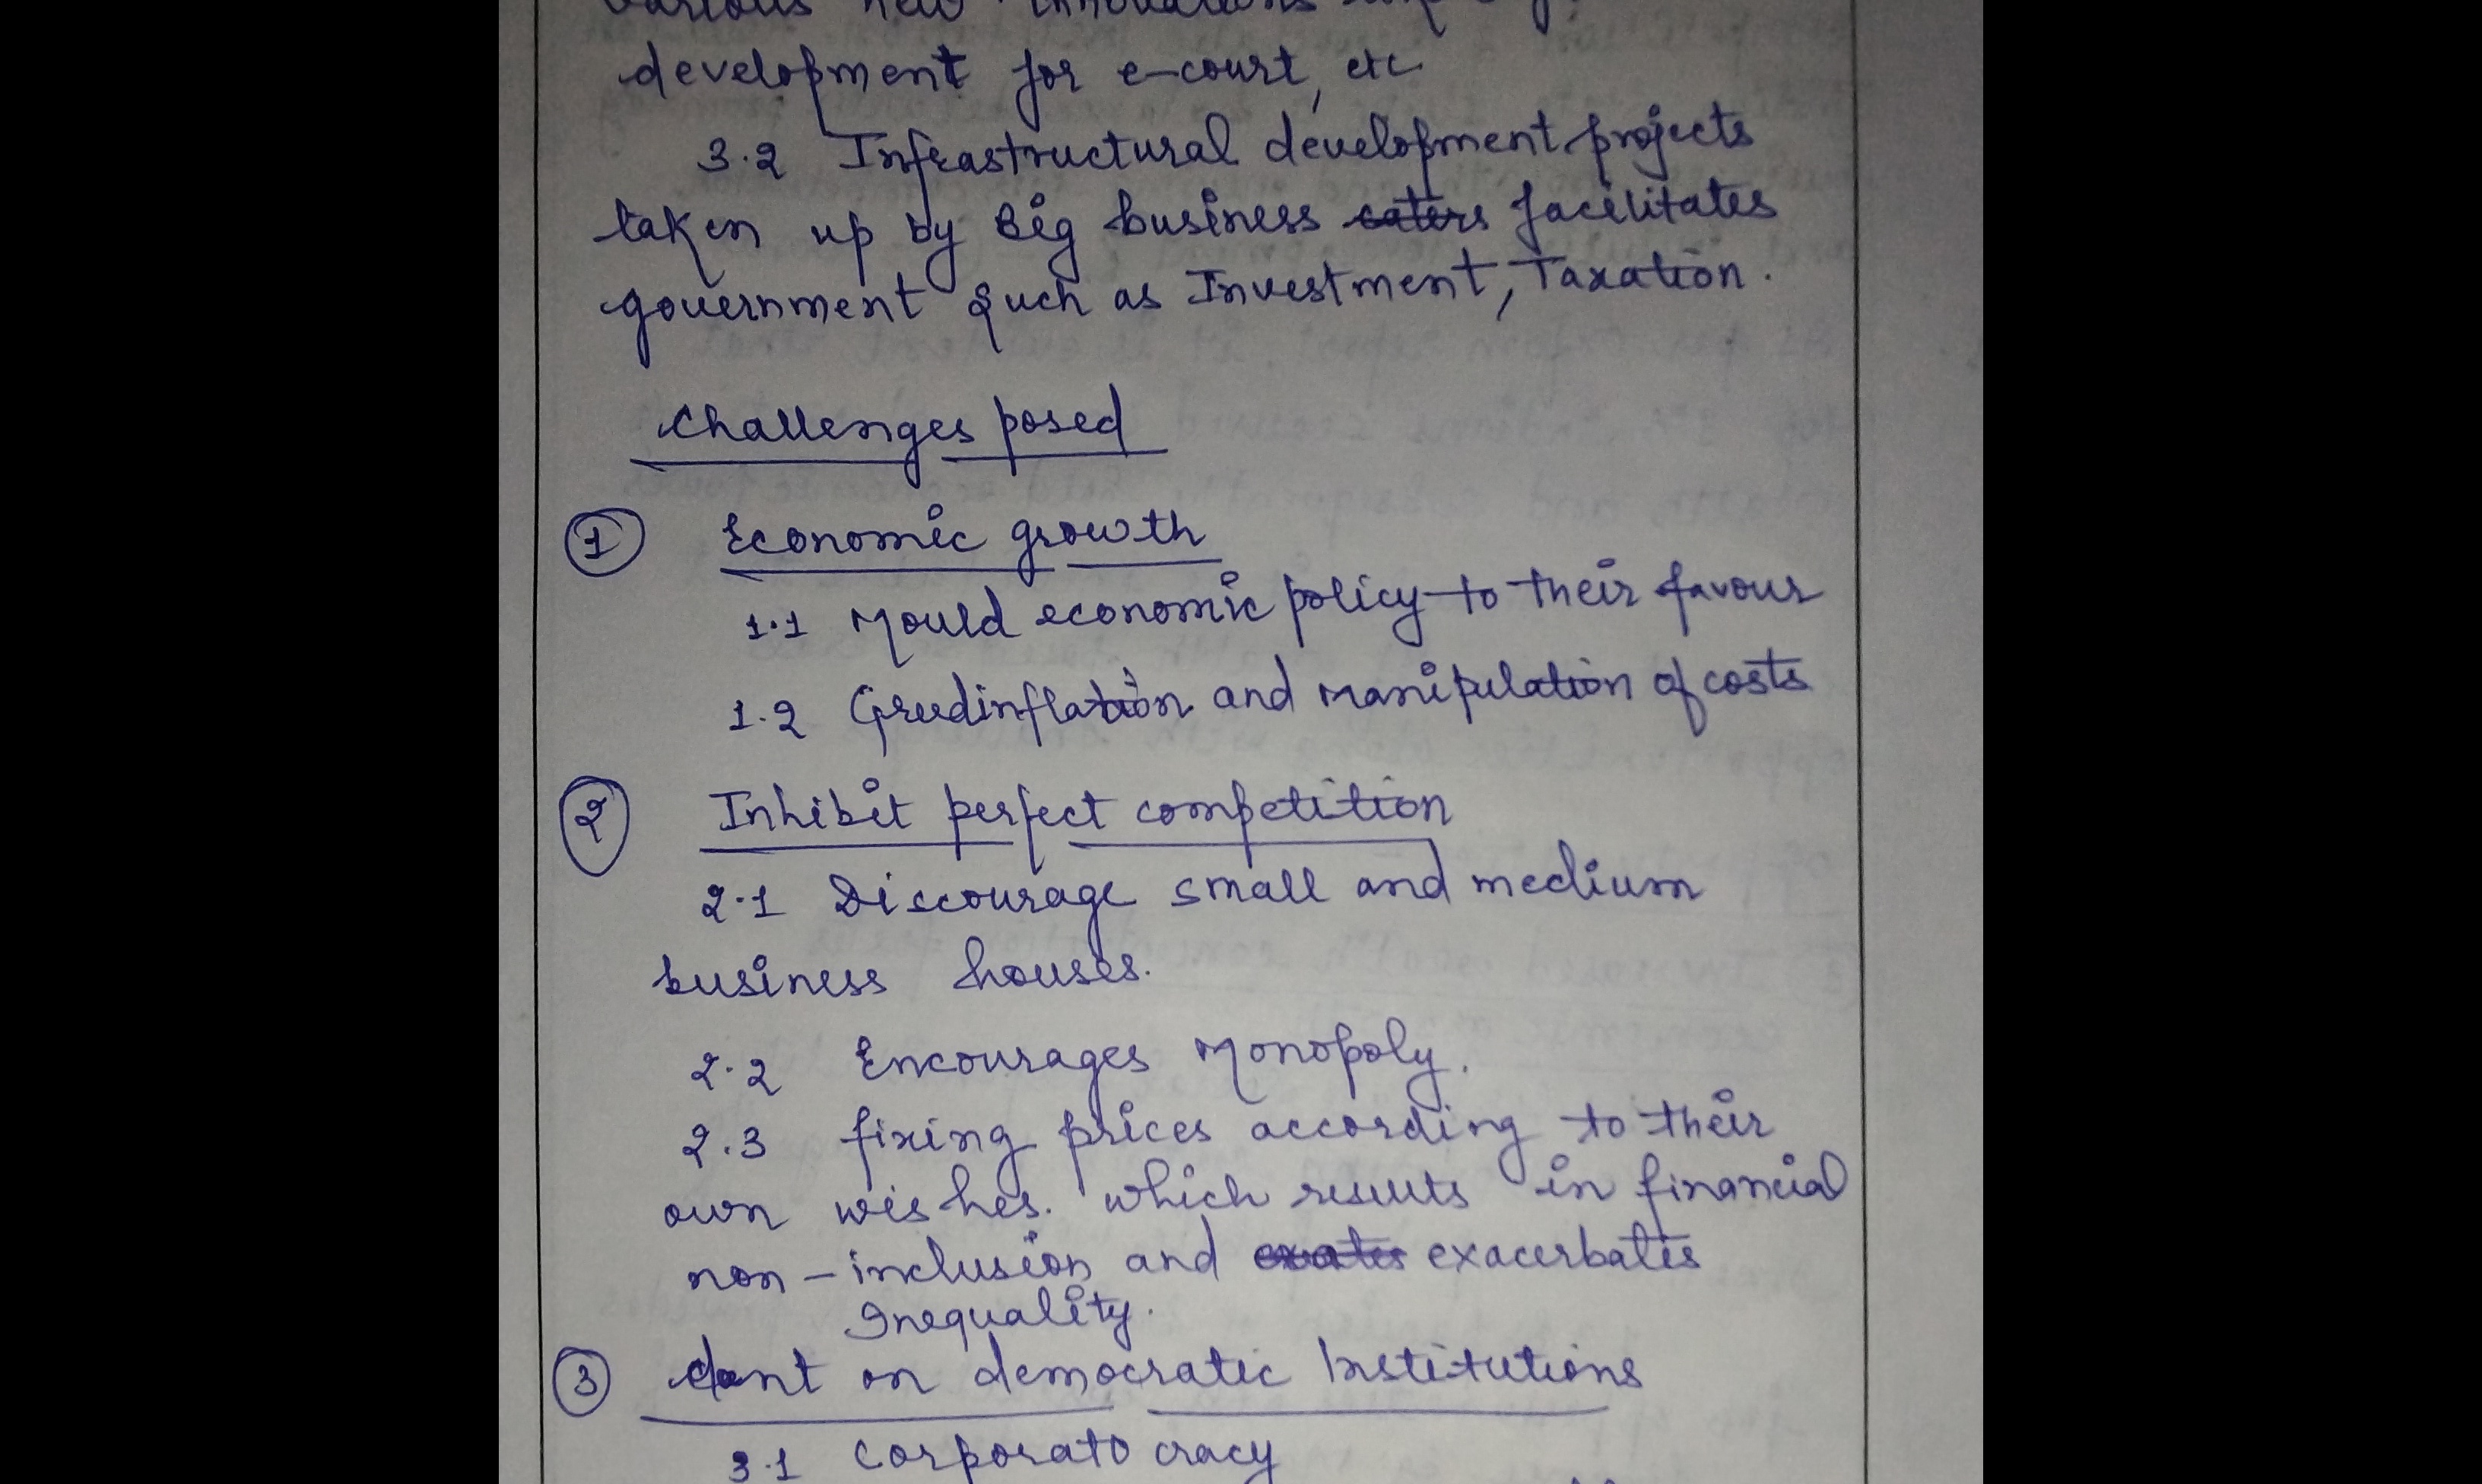 various new innovations
development for e-court, etc
3.2 Infrastructural development projects
taken up by Big business caters facilitates
government such as Investment, Taxation.
Challenges posed
1 Economic growth
1.1 Mould economic policy to their favour
1.2 Greedinflation and manipulation of costs
2 Inhibit perfect competition
2.1 Discourage small and medium
business houses.
2.2 Encourages Monopoly.
2.3 fixing prices according to their
own wishes. which results in financial
non-inclusion and exacerbates
Inequality.
3 dent on democratic Institutions
3.1 Corporato cracy